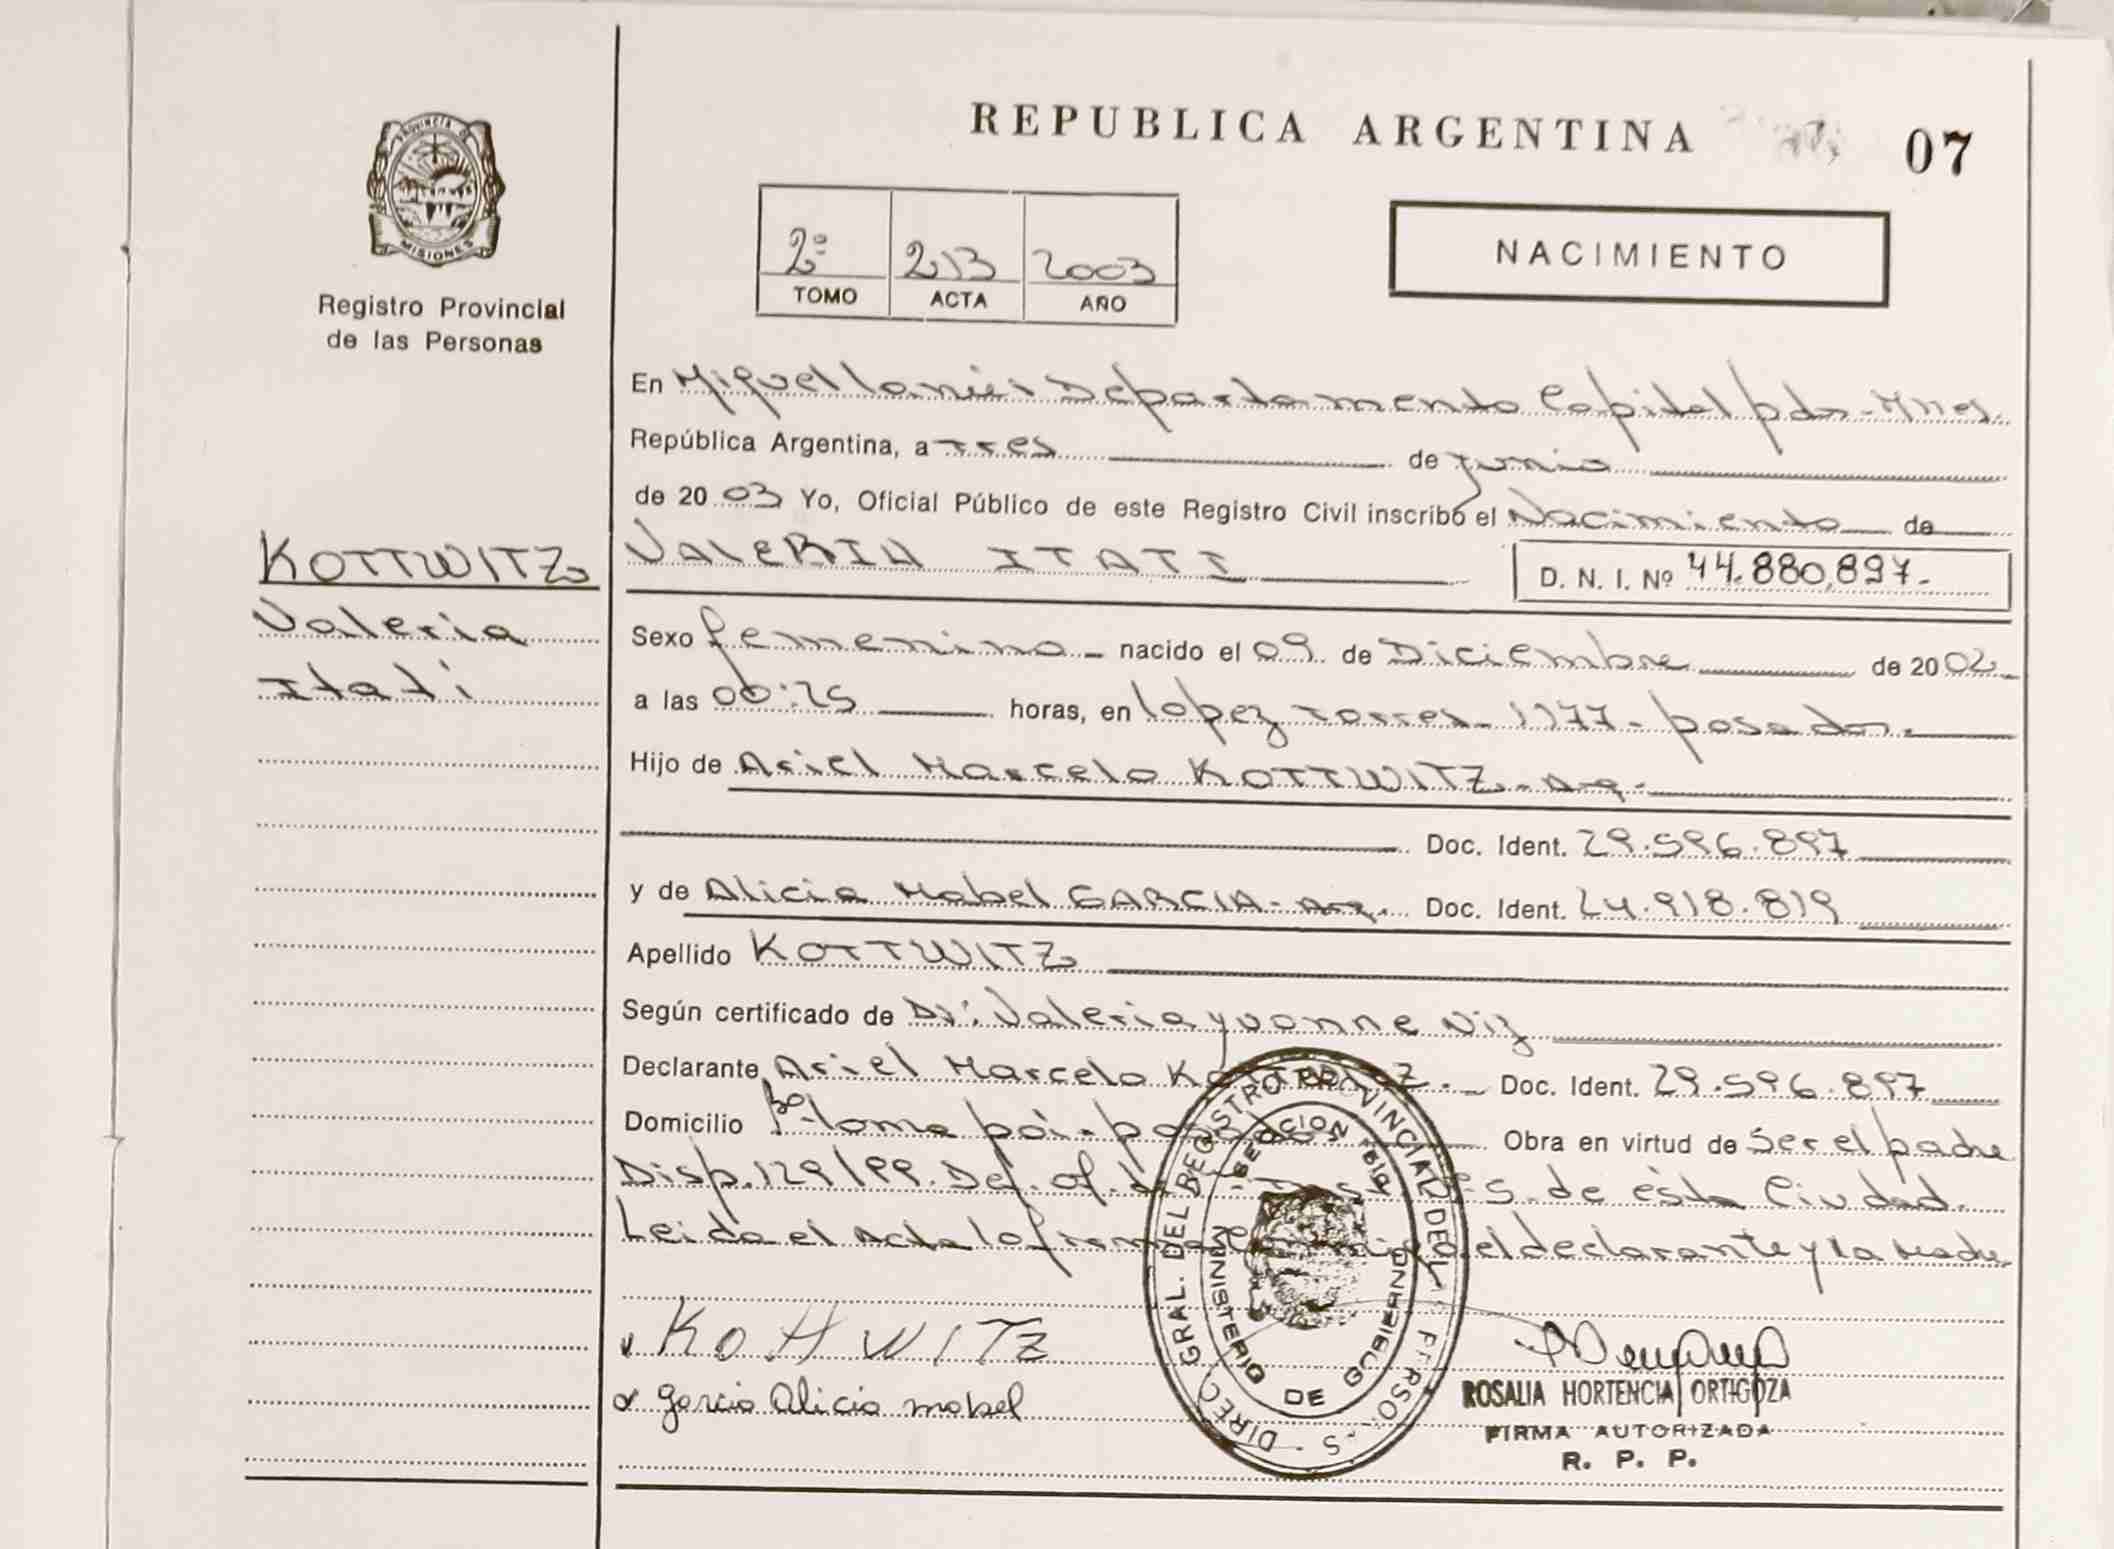 REPUBLICA ARGENTINA
07
PROVINCIA DE
MISIONES
Registro Provincial
de las Personas
2º 213 2003
TOMO ACTA AÑO
NACIMIENTO
En Miguel Lanús Departamento Capital pdas - Mnes.
República Argentina, a tres de junio
de 2003 Yo, Oficial Público de este Registro Civil inscribo el Nacimiento de
VALERIA ITATI D. N. I. Nº 44.880.897.-
KOTTWITZ
Valeria
Itatí
Sexo femenino - nacido el 09 de Diciembre de 2002
a las 06:25 horas, en lopez torres - 1177 - posadas.
Hijo de Ariel Marcelo KOTTWITZ - Arg.
Doc. Ident. 29.596.897
y de Alicia Mabel GARCIA - Arg. Doc. Ident. 24.918.819
Apellido KOTTWITZ
Según certificado de Valeria yvonne Niz
Declarante Ariel Marcelo Doc. Ident. 29.596.897
Domicilio Bº loma poi - Obra en virtud de Ser el padre
Disp. 129/99. Def. of. de ésta Ciudad.
Leida el Acta la el declarante y la Madre
KOTTWITZ
garcia alicia mabel
DIREC. GRAL. DEL REGISTRO PROVINCIAL DE
MINISTERIO DE GOBIERNO
ROSALIA HORTENCIA ORTIGOZA
FIRMA AUTORIZADA
R. P. P.